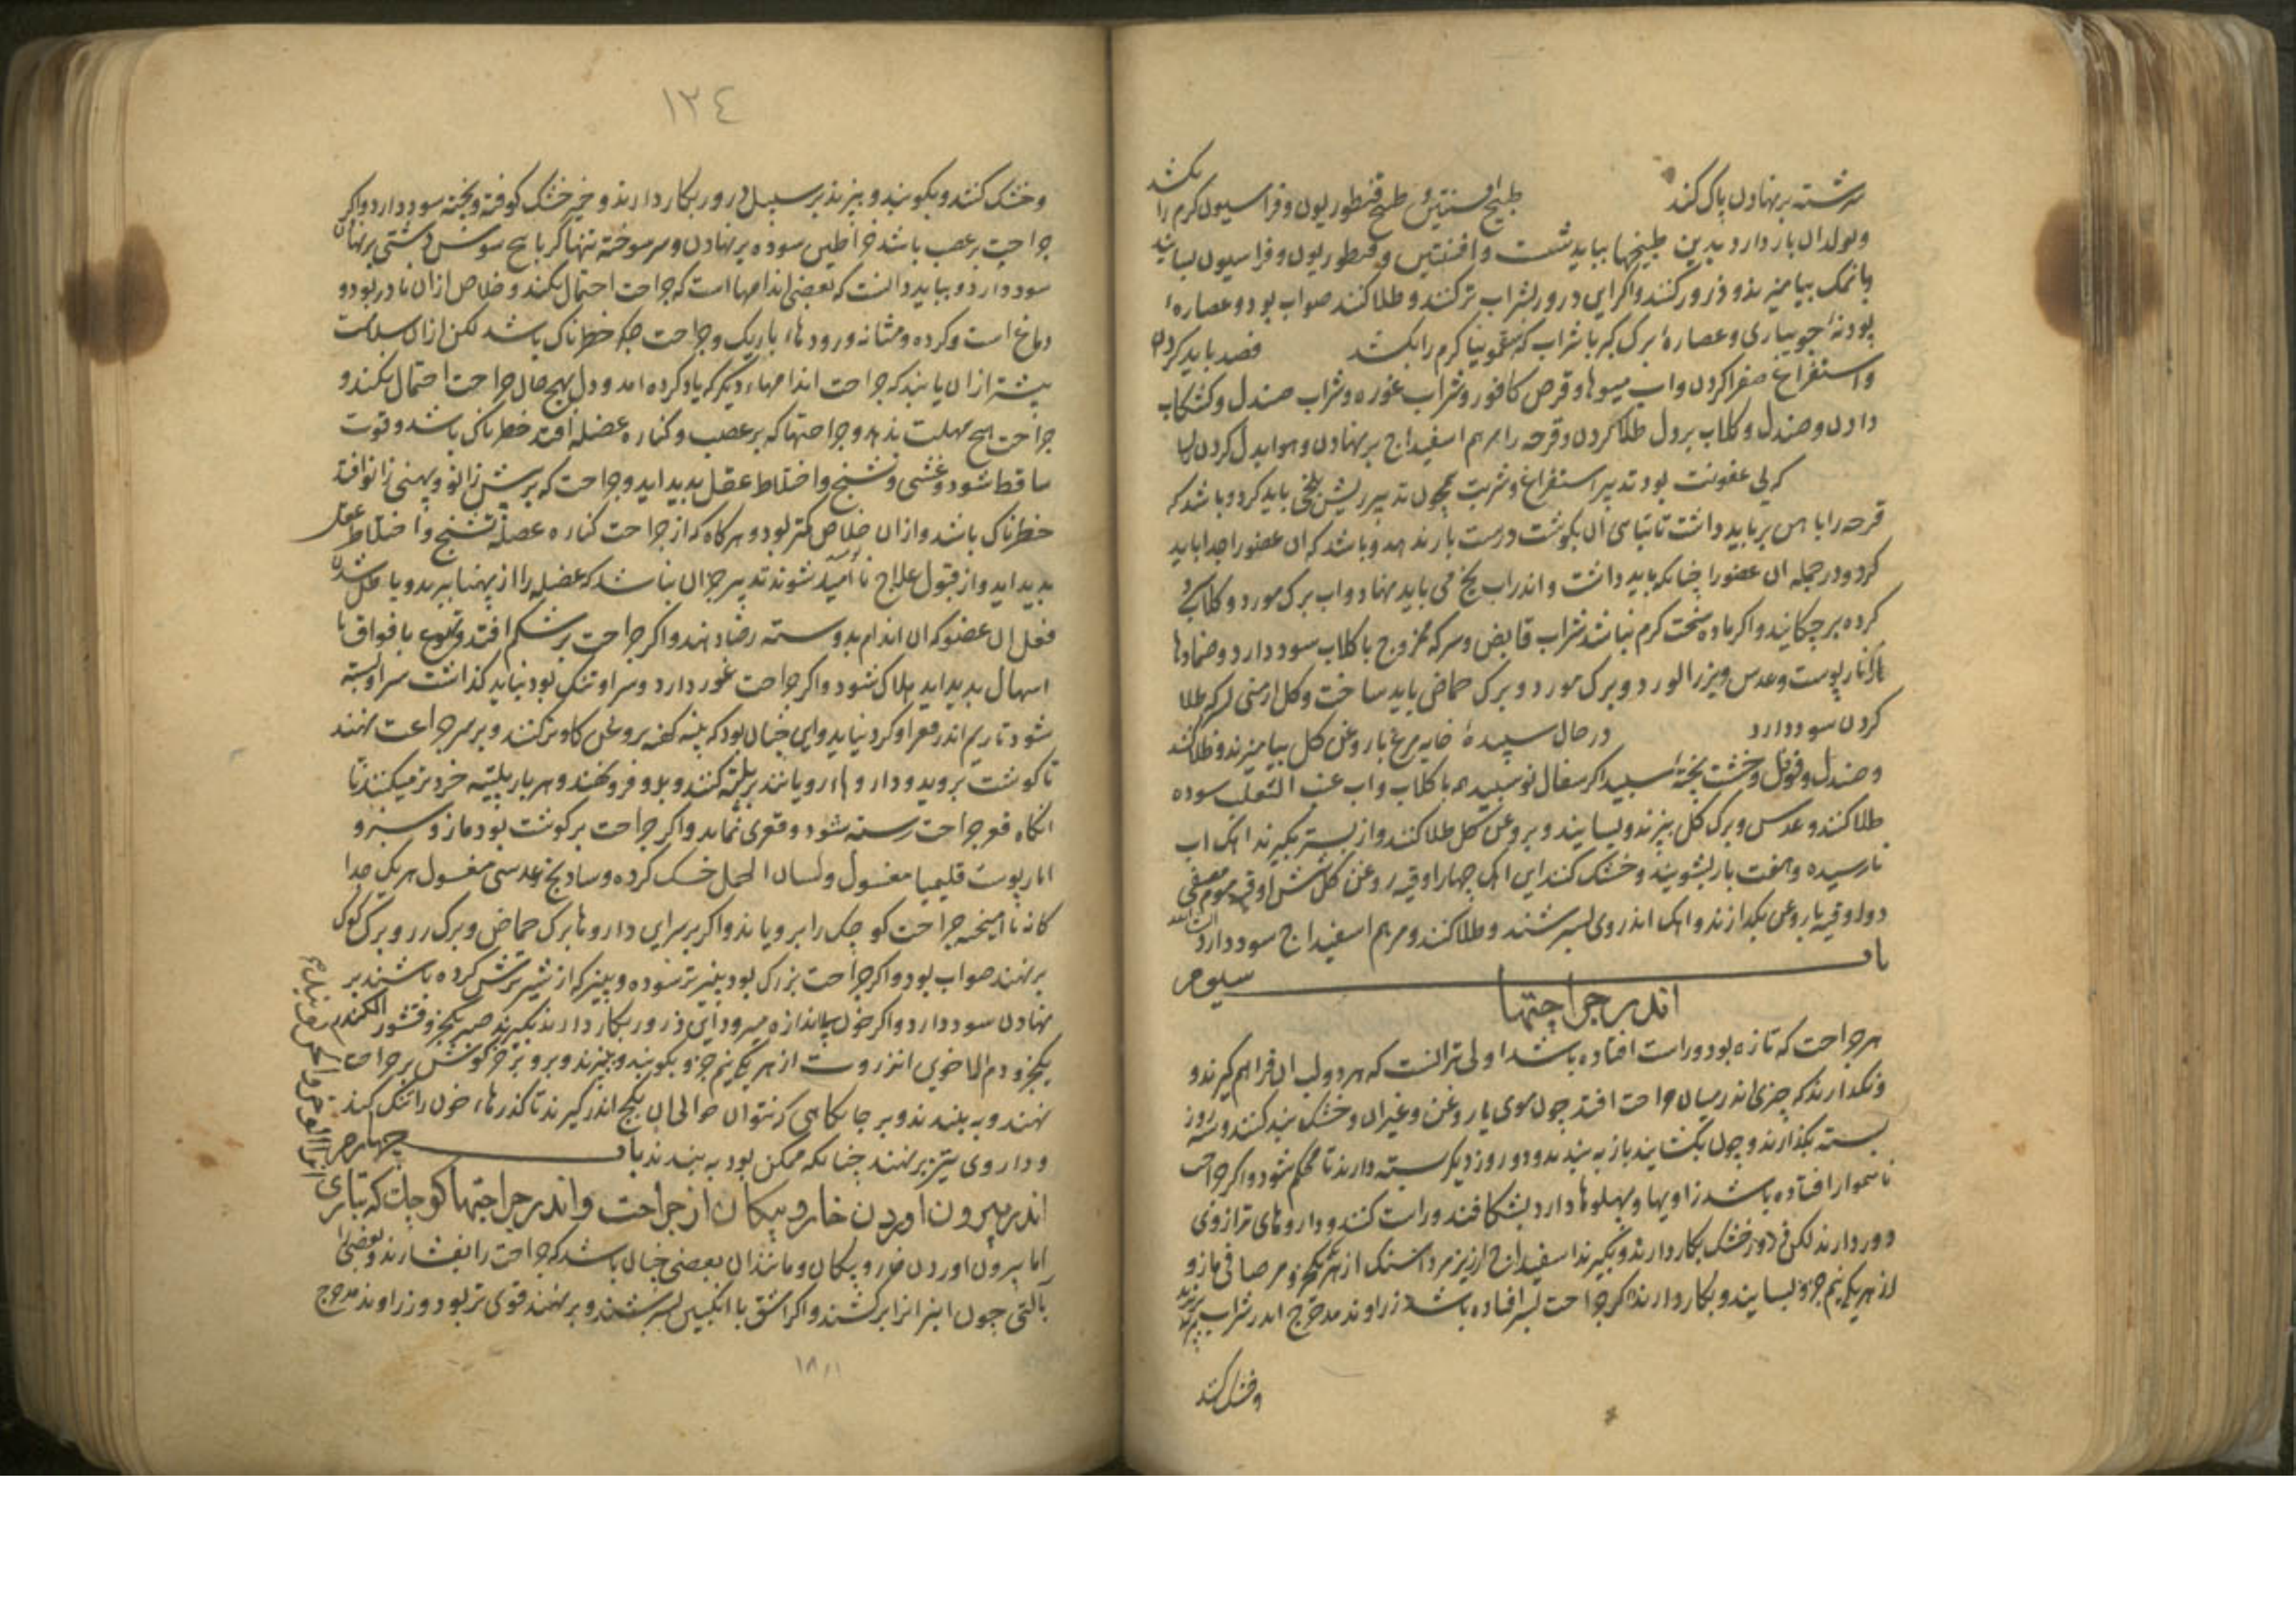 سرشته برنهادن پاک کند طبیخ افسنتین و طبیخ قنطوریون و فراسیون کرم را بکشد
و تولد ان باز دارد بدین طبیخها بباید شست و افسنتین و قنطوریون و فراسیون بسایند
و با نمک بیامیزند و ذرور کنند و اکر این درور بشراب تر کنند و طلا کنند صواب بود و عصاره
پودنه جویباری و عصاره برک کبر با شراب که سقمونیا کرم را بکشد فصد باید کردن
و استفراغ صفرا کردن و اب میوها و قرص کافور و شراب غوره و شراب صندل و کشکاب
دادن و صندل و کلاب بر دل طلا کردن و قرحه را مرهم اسفیداج برنهادن و هوا بدل کردن
که بی عفونت بود تدبیر استفراغ و شربت همچون تدبیر ریش بلخی باید کرد و باشد که
قرحه را باهن بر باید داشت تا تباهی ان بکوشت درست باز ندهد و باشد که ان عضو را جدا باید
کرد و در جمله ان عضو را چنانکه باید داشت و اندر اب یخ می باید نهاد و اب برک مورد و کلاب
کرده بر چکانید و اکر ماده سخت کرم نباشد شراب قابض و سرکه ممزوج با کلاب سود دارد و ضمادها
از نار پوست و عدس و بزر الورد و برک مورد و برک حماض باید ساخت و کل ارمنی بسرکه طلا
کردن سود دارد در حال سپیده خایه مرغ با روغن کل بیامیزند و طلا کنند
و صندل و فوفل و خشت پخته سپید اکر سفال نو سپید همه با کلاب و اب عنب الثعلب سوده
طلا کنند و عدس و برک کل بپزند و بسایند و بروغن کل طلا کنند و از بستر بکیرند اهک اب
نارسیده و هفت بار بشویند و خشک کنند این اهک چهار اوقیه روغن کل شش اوقیه موم مصفی
دو اوقیه با روغن بکدازند و اهک اندر وی بسرشند و طلا کنند و مرهم اسفیداج سود دارد ان شا الله
باب سیوم
اندر جراحتها
هر جراحت که تازه بود و راست افتاده باشد اولی تر انست که هر دو لب ان فراهم کیرند و
و نکدارند که چیزی اندر میان جراحت افتد چون موی یا روغن و غیر ان و خشک بند کنند و سه روز
بسته بکذارند و چون بکشایند باز به بندند و دو روز دیکر بسته دارند تا محکم شود و اکر جراحت
ناهموار افتاده باشد زاویها و پهلوها دارد بشکافند و راست کنند و داروهای تر از وی
دور دارند لکن ذرور خشک بکار دارند و بکیرند اسفیداج ارزیز مرداسنک از هر یکی جزو مر صافی مازو
از هر یکی نیم جزو بسایند و بکار دارند اکر جراحت بسر افتاده باشد زراوند مدحرج اندر شراب بپزند
و خشک کنند
١٣٤
و خشک کنند و بکوبند و ببیزند بر سبیل درور بکار دارند و خیر خشک کوفته و پخته سود دارد و اکر
جراحت بر عصب باشد خراطین سوده برنهادن و سر سوخته تنها اکر با بیخ سوسن دشتی برنهادن
سود دارد و بباید دانست که بعضی اندامها است که جراحت احتمال نکند و خلاص از ان نادر بود و
دماغ است و کرده و مثانه و رودهاء باریک و جراحت جکر خطرناک باشد لکن از ان سلامت
بیشتر از ان یابند که جراحت اندامهاء دیکر که یاد کرده امد و دل بهیچ حال جراحت احتمال نکند و
جراحت هیچ مهلت ندهد و جراحتها که بر عصب و کناره عضله افتد خطرناک باشد و قوت
ساقط شود و غشی و تشنج و اختلاط عقل پدید اید و جراحت که بر پیش زانو و پهنی زانو افتد
خطرناک باشد و از ان خلاص کمتر بود و هرکاه که از جراحت کناره عضله تشنج و اختلاط عقل
پدید اید و از قبول علاج نا امید شوند تدبیر جز ان نباشد که عضله را از پهنا ببرند و باطل شدن
فعل ان عضو که ان اندام بدو بسته رضا دهند و اکر جراحت بر شکم افتد و تهوع با فواق با
اسهال پدید اید هلاک شود و اکر جراحت غور دارد و سر او تنک بود نباید کذاشت سر او بسته
شود تا ریم اندر قعر او کرد نیاید و این چنان بود که پنبه کهنه بروغن کاو تر کنند و بر سر جراحت نهند
تا کوشت بروید و داروهاء رویانند بر پلیته کنند و بدو فرو نهند و هر بار پلیته خردتر میکنند تا
انکاه قعر جراحت رسته شود و قعری نماید و اکر جراحت بر کوشت بود مازو سبز و
انار پوست قلیمیا مغسول و لسان الحمل خشک کرده و سادنج عدسی مغسول هر یک جدا
کانه نا امیخته جراحت کوچک را برویاند و اکر بر سر این داروها برک حماض و برک رز و برک کوک
برنهند صواب بود و اکر جراحت بزرک بود پنیر تر سوده و پنیر که از شیر ترش کرده باشند بر
نهادن سود دارد و اکر خون بی اندازه میرود این ذرور بکار دارند بکیرند صبر یکجزو قشور الکندر
یکجزو دم الاخوین انزروت از هر یکی نیم جزو بکوبند و ببیزند و بر وبر خرکوش بر جراحت
نهند و به بندند و بر جایکاهی که نتوان حوالی ان بکچ اندر کیرند تا کذرهاء خون را تنک کند
و داروی تیز برنهند چنانکه ممکن بود به بندند باب چهارم
اندر بیرون اوردن خار و پیکان از جراحت و اندر جراحتها کوچک که تازی
اما بیرون اوردن خار و پیکان و مانند ان بعضی چنان باشد که جراحت را بفشارند و بعضی را
بالتی چون انبر انرا برکشند و اکر اشق با انکبین بسرشند و برنهند قوی تر بود و زراوند مدحرج